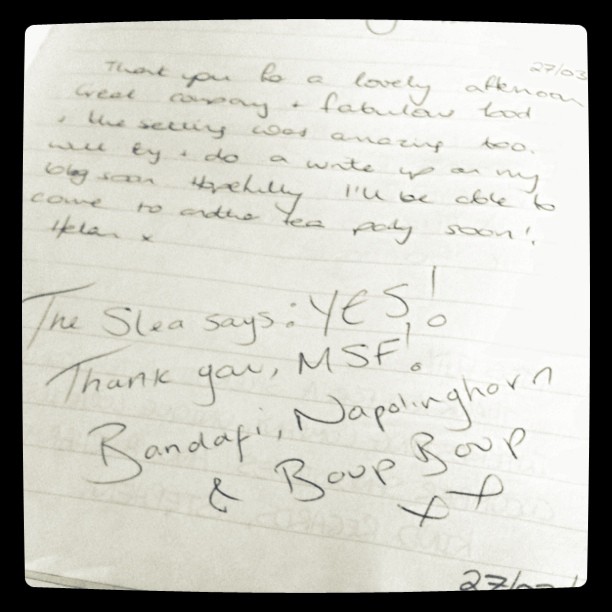 27/03
Thank you for a lovely afternoon
Great company + fabulous food
+ the setting was amazing too.
will try + do a write up on my
blog soon Hopefully I'll be able to
come to another tea party soon!
Helen x
The Slea says: YES!
Thank you, MSF!
Bandafi, Napolinghorn
& Boup Boup
xx
27/03/
KIND REGARDS, STEPHEN